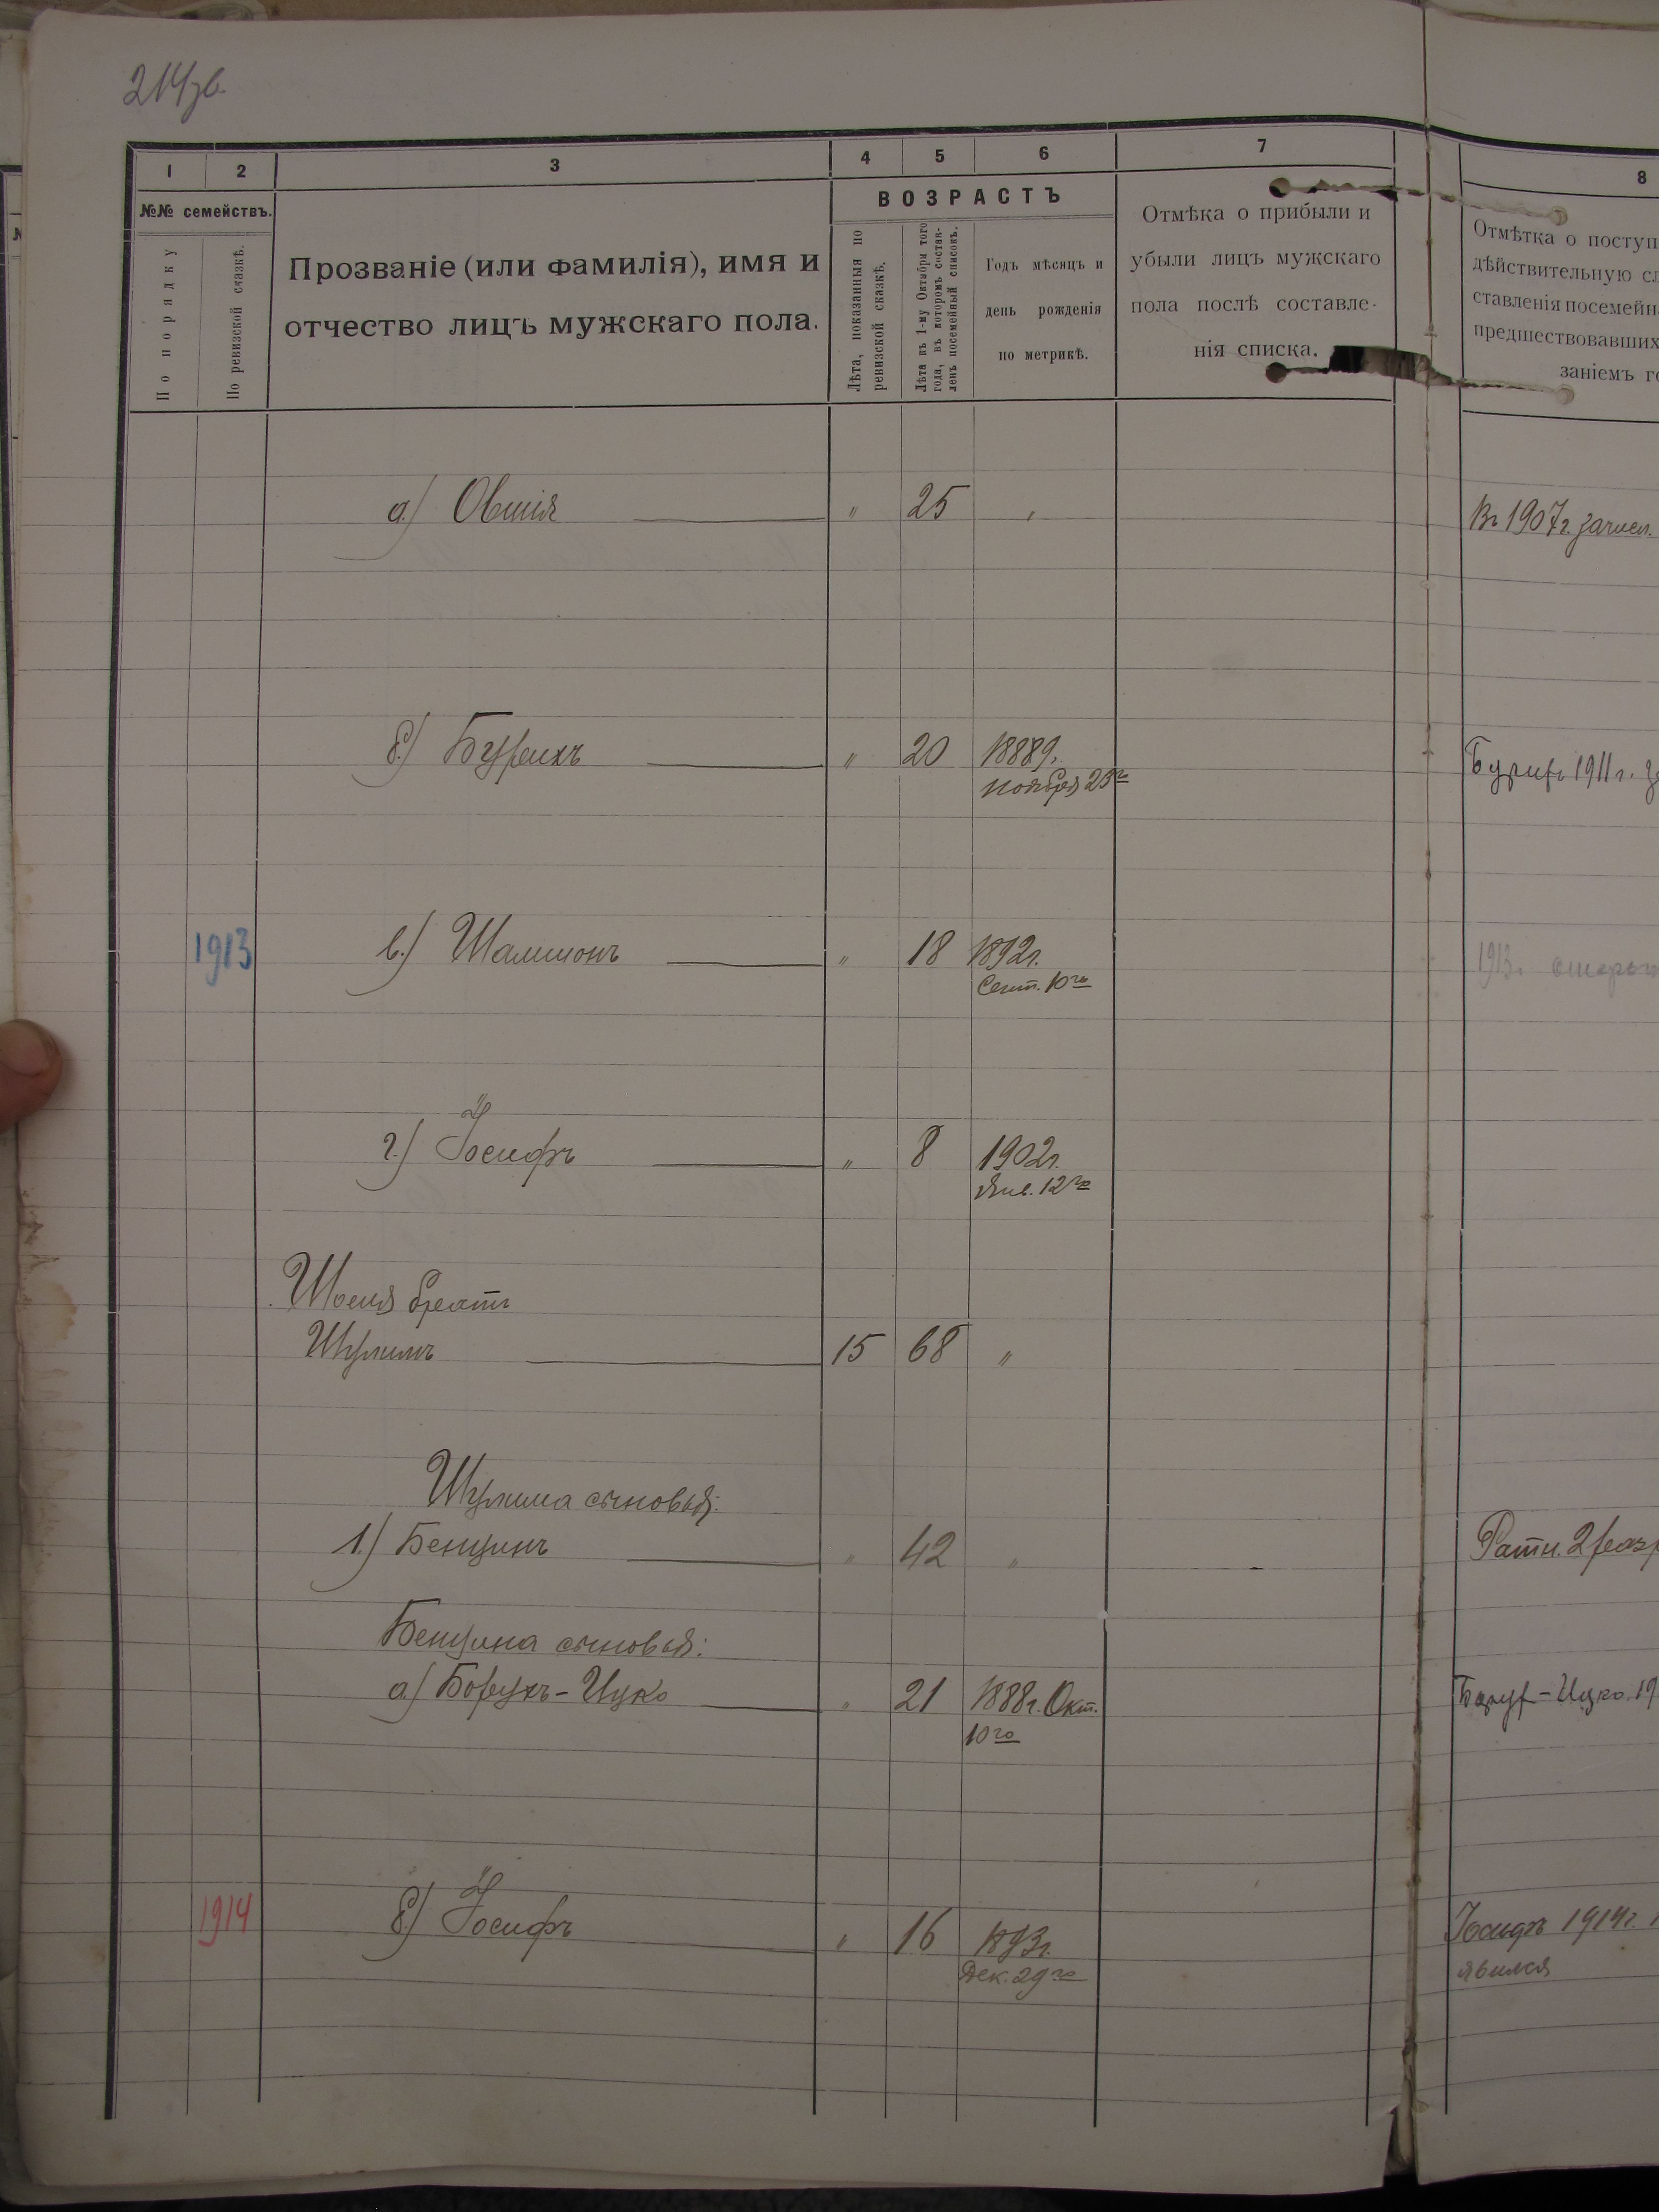 214 зв.
1 2 3 4 5 6 7 8
№№ семействъ.
По порядку
По ревизской сказкѣ.
Прозваніе (или фамилія), имя и
отчество лицъ мужскаго пола.
ВОЗРАСТЪ
Лѣта, показанныя по
ревизской сказкѣ.
Лѣта къ 1-му Октября того
года, въ которомъ состав-
ленъ посемейный списокъ.
Годъ мѣсяцъ и
день рожденія
по метрикѣ.
Отмѣка о прибыли и
убыли лицъ мужскаго
пола послѣ составле-
нія списка.
Отмѣтка о поступ
дѣйствительную сл
ставленія посемейн
предшествовавших
заніемъ го
а.) Овшія " 25 " Въ 1907 г. зачисл.
б.) Бурихъ " 20 1888 г.
ноября 23го
Бурихъ 1911 г.
1913 в.) Шамшонъ " 18 1892 г.
Сент. 10го
1913 г.
г.) Іосифъ " 8 1902 г.
Янв. 12го
братъ
15 68 "
сыновья:
1.) Бенцинъ " 42 " Ратн. 2 разр
Бенцина сыновья:
а.) Борухъ-Ицко " 21 1888 г. Окт.
10го
Борух-Ицко. 19
1914 б.) Іосифъ " 16 1893 г.
Дек. 29го
Іосифъ 1914 г.
явился